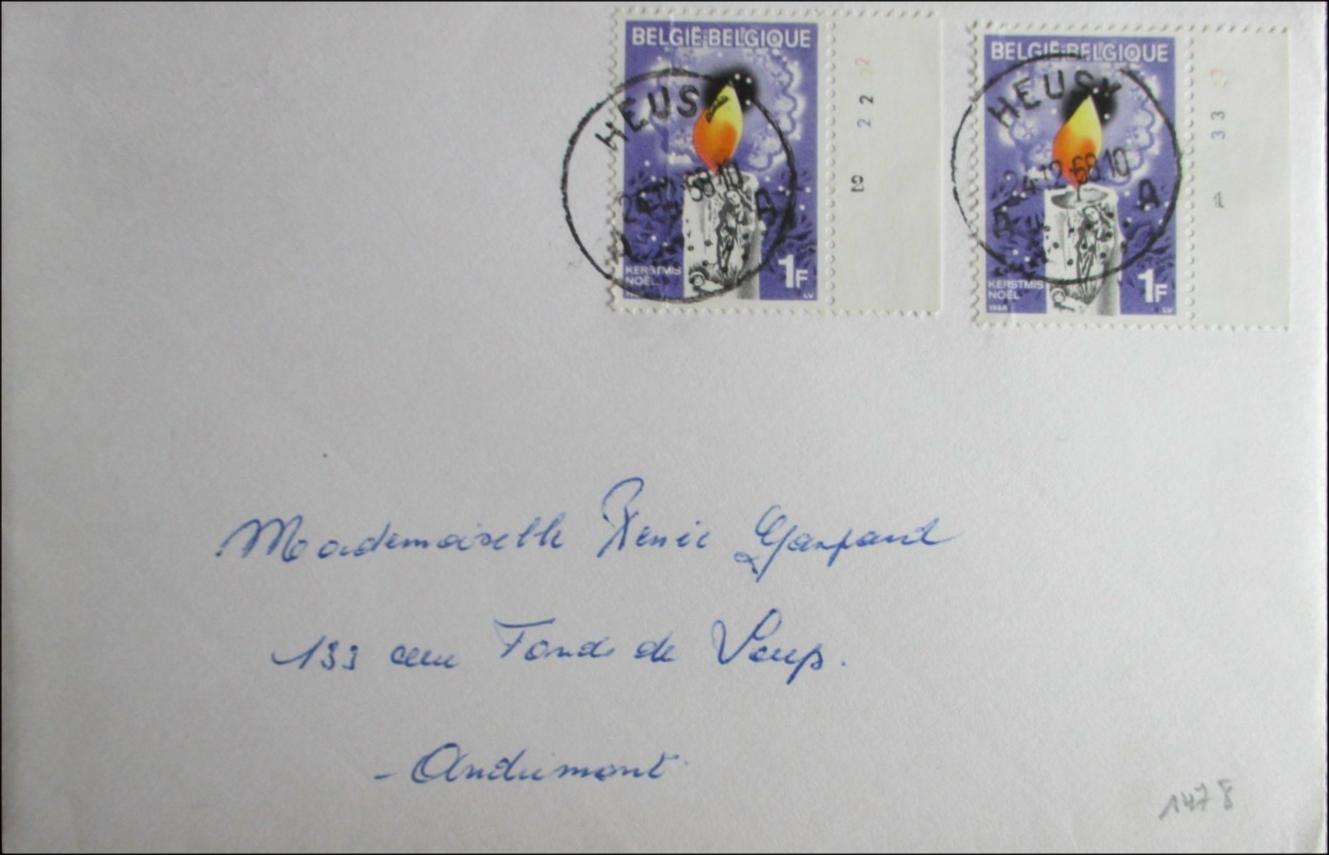 BELGIË-BELGIQUE
KERSTMIS
NOËL
1F
LV
2 2 2
HEUSY
24-12-68 10
A A
BELGIË-BELGIQUE
KERSTMIS
NOËL
1968
1F
LV
1 33
HEUSY
24-12-68 10
A A
Mademoiselle Renée Gaspard
133 au Fond de Loup.
- Andrimont
1478